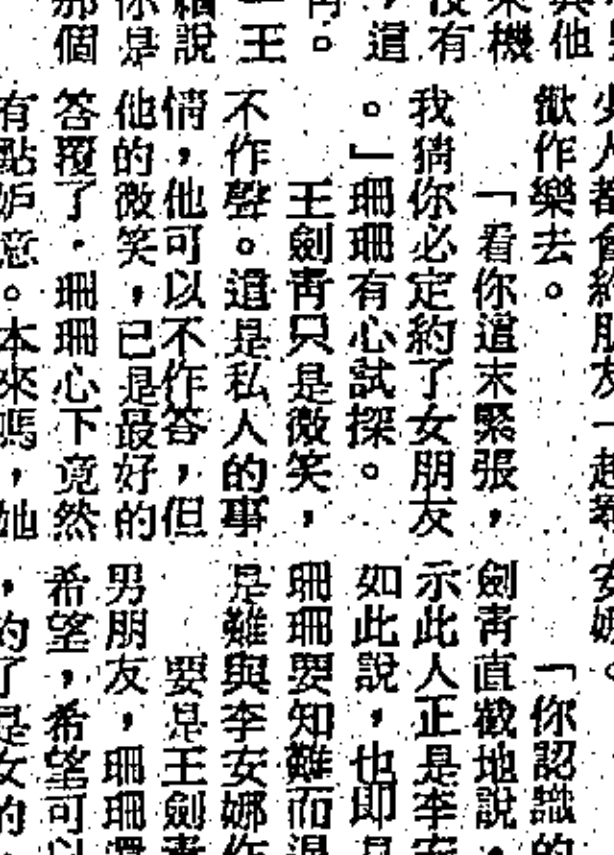 與他
來機
沒有
，這
再。
一王
個說
你是
那個
歡作樂去。
「看你這末緊張，
我猜你必定約了女朋友
。」珊珊有心試探。
王劍青只是微笑，
不作聲。這是私人的事
情，他可以不作答，但
他的微笑，已是最好的
答覆了。珊珊心下竟然
有點妒意。本來嗎，她
安娜。
「你認識的
劍青直截地說。
示此人正是李安
如此說，也即是
珊珊要知難而退
是難與李安娜作
要是王劍青
男朋友，珊珊還
希望，希望可以
，約了是女的，